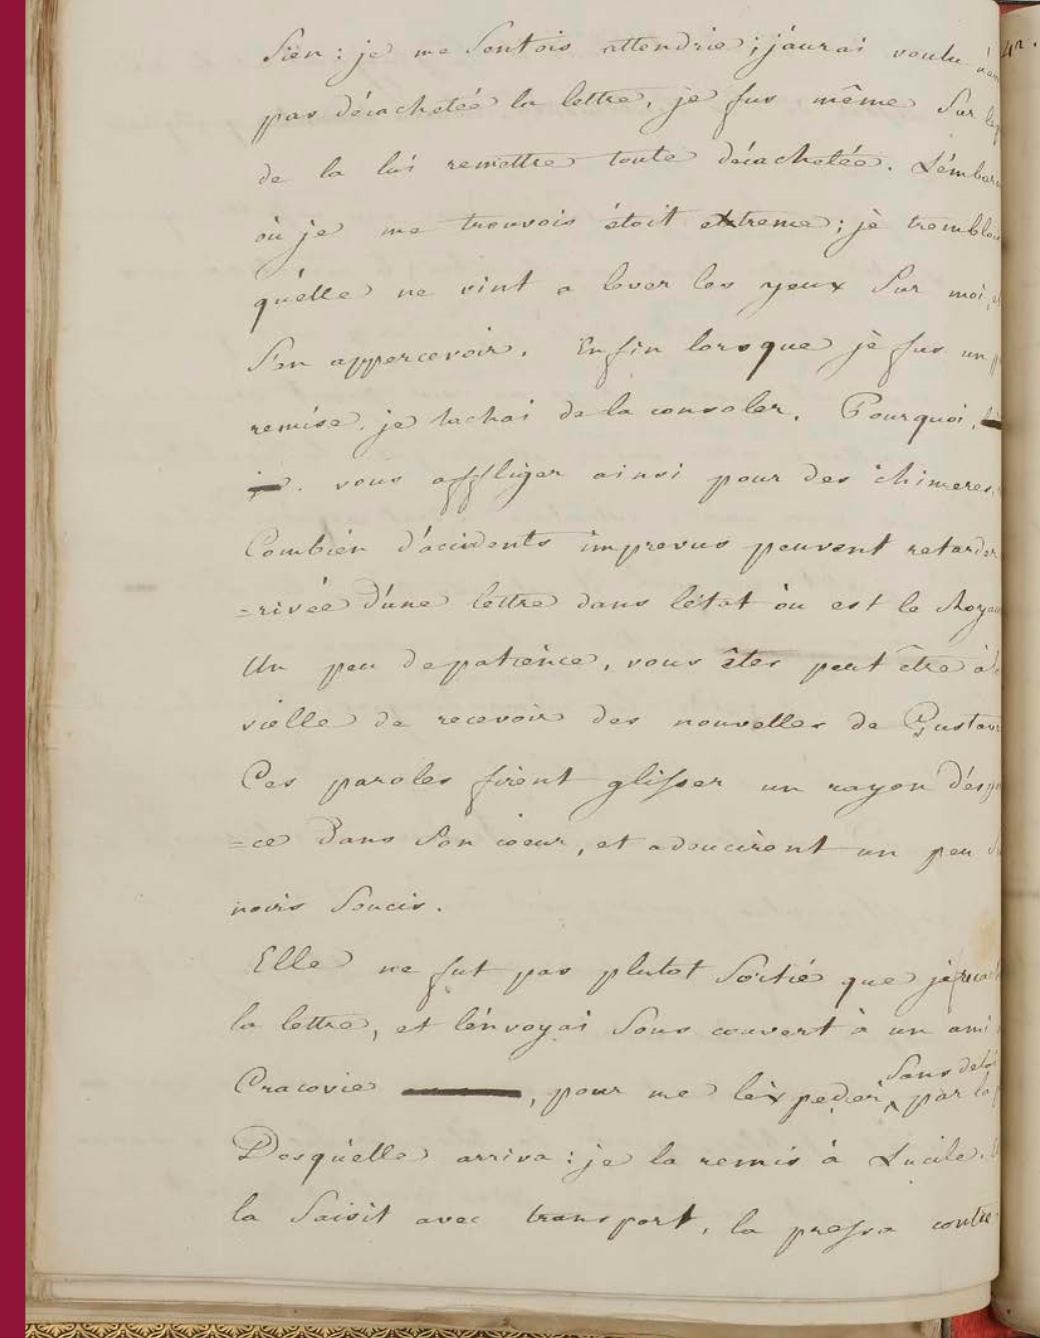 Sien: je me Sentois attendrie; j'aurai voulu
pas décachetée la lettre, je fus même Sur
de la lui remettre toute décachetée. L'embar
où je me trouvois étoit extreme; je tremblois
qu'elle ne vint a lever les yeux Sur moi,
S'en appercevoir. Enfin lorsque je fus un
remise, je tachai de la consoler. Pourquoi,
vous affliger ainsi pour des chimeres.
Combien d'accidents imprevus peuvent retarder
=rivée d'une lettre dans l'état où est le Roya
Un peu de patience, vous êtes peut être à
vielle de recevoir des nouvelles de Gustav
Ces paroles firent glisser un rayon d'esp
=ce dans Son coeur, et adoucirent un peu
noirs Soucis.
Elle ne fut pas plutot Sortie que je
la lettre, et l'envoyai Sous couvert à un ami
Cracovie, pour me l'expedier Sans delai par la
Desqu'elle arriva: je la remis à Lucile.
la Saisit avec transport, la pressa contre